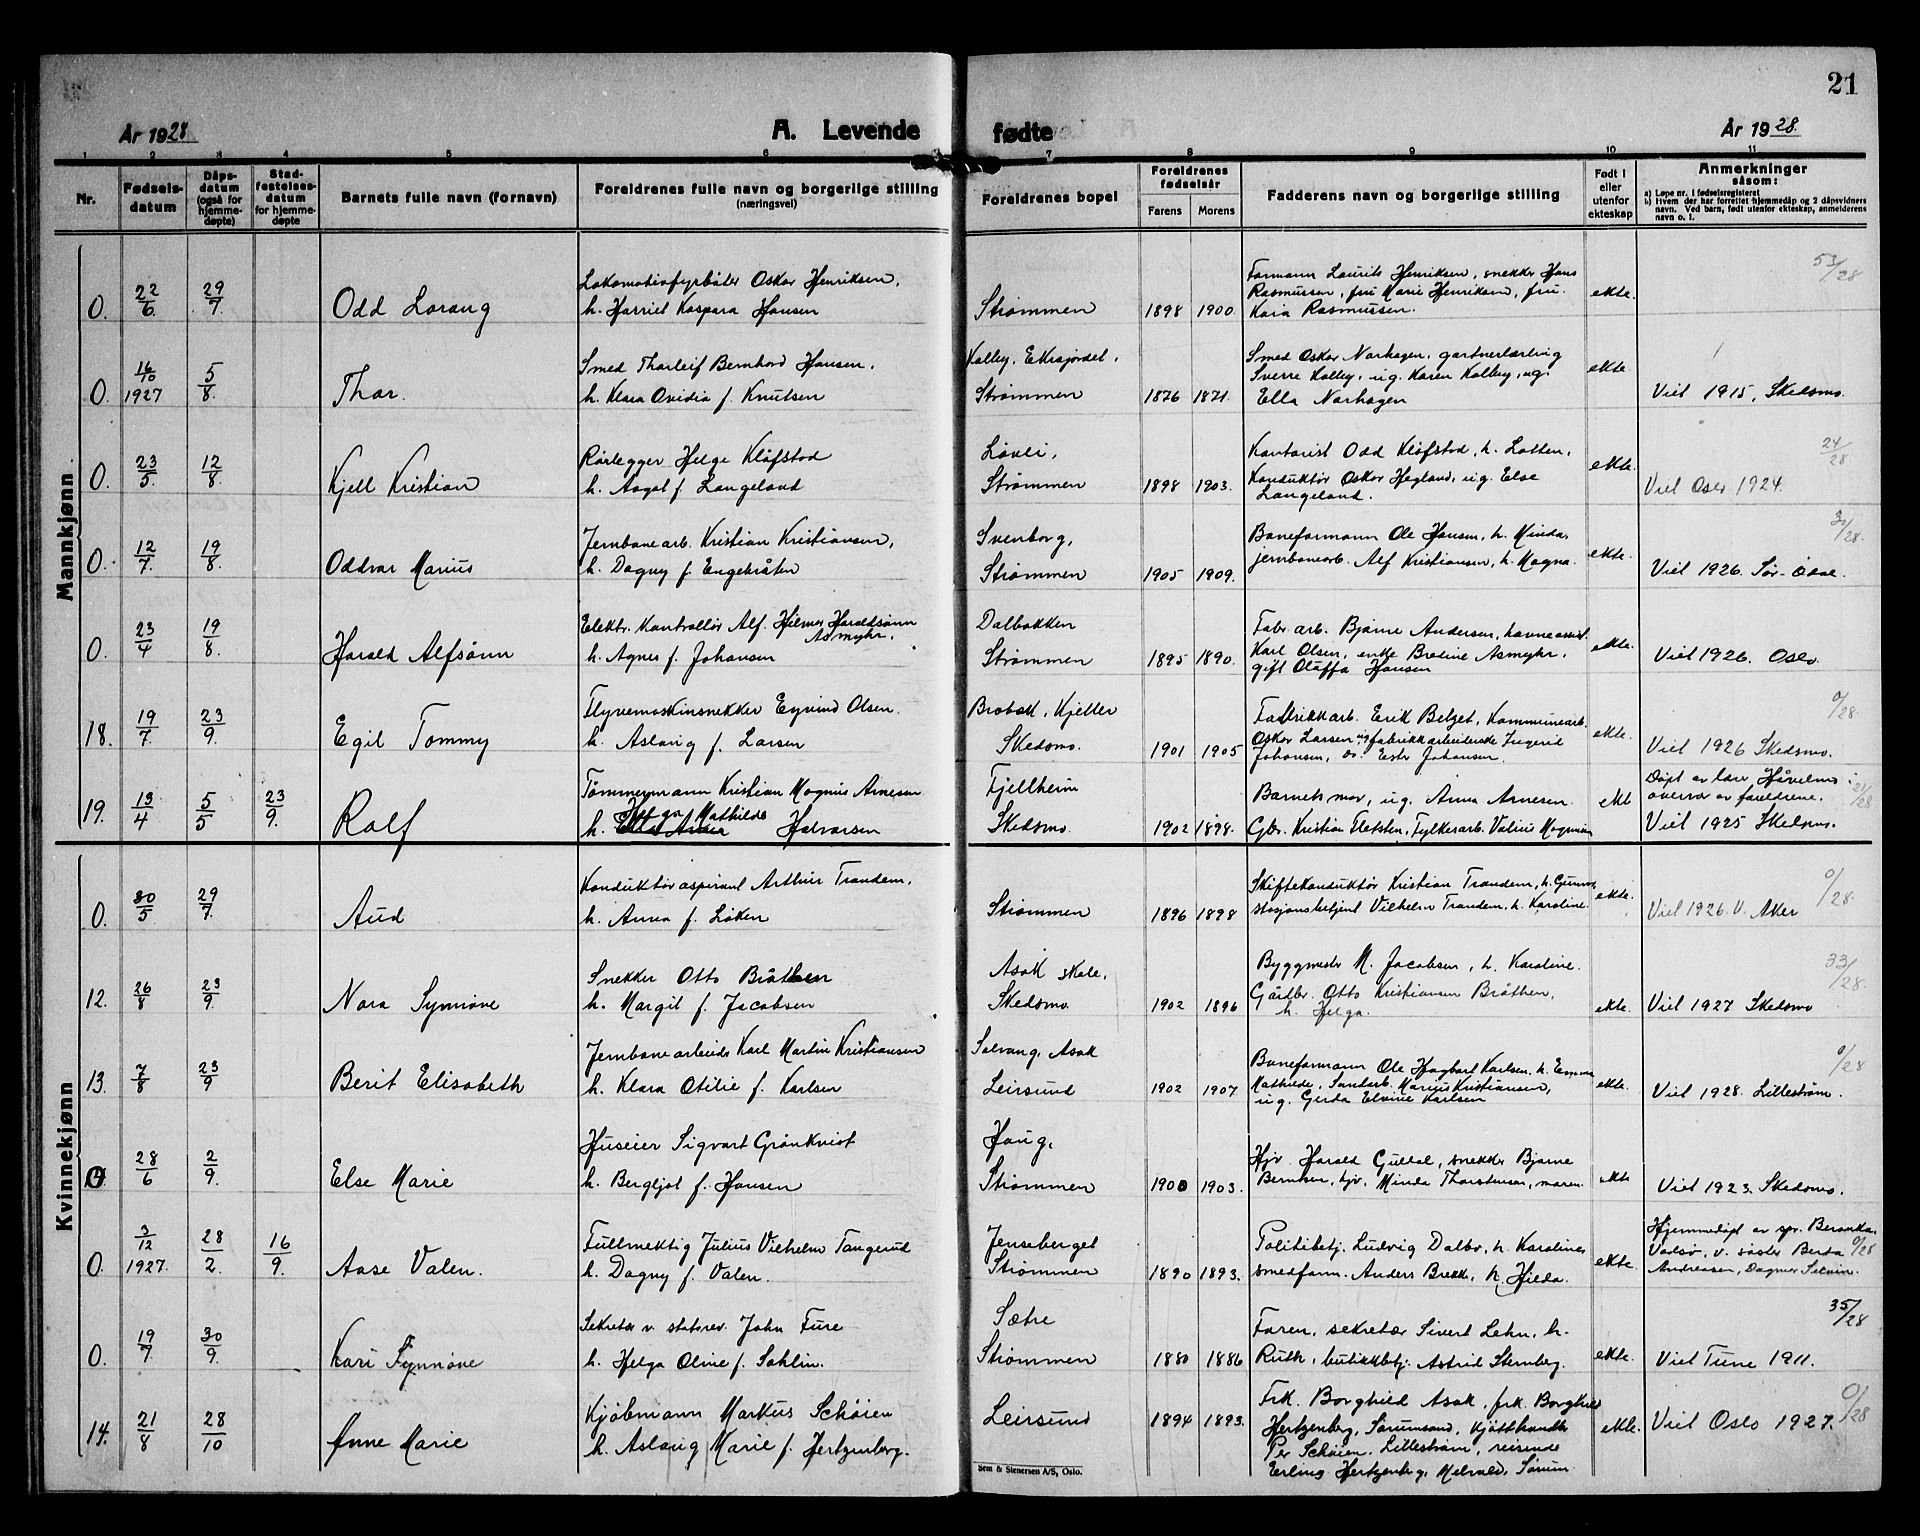 21
År 1928
A. Levende fødte
År 1928.
1 2 3 4 5 6 7 8 9 10 11
Nr.
Fødsels-
datum
Dåps-
datum
(også for
hjemme-
døpte)
Stad-
festelses-
datum
for hjemme-
døpte
Barnets fulle navn (fornavn)
Foreldrenes fulle navn og borgerlige stilling
(næringsvei)
Foreldrenes bopel
Foreldrenes
fødselsår
Farens Morens
Fadderens navn og borgerlige stilling
Født i
eller
utenfor
ekteskap
Anmerkninger
såsom:
a) Løpe nr. i fødselsregisteret
b) Hvem der har forrettet hjemmedåp og 2 dåpsvidners
navn. Ved barn, født utenfor ekteskap, anmelderens
navn o. l.
Mannkjønn
0. 22/6 29/7 Odd Lorang
Lokomotivfyrbøter Oskar Henriksen,
h. Harriet Kaspara Hansen
Strømmen 1898 1900
Formann Laurits Henriksen, snekker Hans
Rasmussen, fru Marie Henriksen, fru
Kaia Rasmussen.
ekte.
53/28
0. 16/10 1927 5/8 Thor.
Smed Thorleif Bernhard Hansen,
h. Klara Ovidia f. Knutsen
Kolby,
Strømmen 1876 1871.
Smed Oskar Norhagen, gartnerlærling
Sverre Kolby, ug. Karen Kolby, ug.
Ella Norhagen
ekte.
Viet 1915, Skedsmo.
0. 23/5 12/8 Kjell Kristian
Rørlegger Helge Kløfstad
h. Aagot f. Langeland
Løvli,
Strømmen 1898 1903.
Kontorist Odd Kløfstad, h. Lotten,
Konduktør Oskar Hegland, ug. Else
Langeland.
ekte.
24/28
Viet Oslo 1924.
0. 12/7 19/8 Oddvar Marius
Jernbanearb. Kristian Kristiansen,
h. Dagny f. Engebråten
Svenborg,
Strømmen 1905 1909.
Baneformann Ole Hansen, h. Minda,
jernbanearb. Alf Kristiansen, h. Magna.
ekte.
30/28.
Viet 1926. Sør-Odal.
0. 23/4 19/8 Harald Alfsønn
Elektr. kontrollør Alf Hilmer Haraldsønn
Asmyhr,
h. Agnes f. Johansen
Dalbakken
Strømmen 1895 1890.
Fabr. arb. Bjarne Andersen, havneassist.
Karl Olsen, enke Bredine Asmyhr,
gift Olaffa Hansen
ekte.
Viet 1926. Oslo.
18. 19/7 23/9 Egil Tommy
Flyvemaskinsnekker Eyvind Olsen.
h. Aslaug f. Larsen
Brobæk, Kjeller
Skedsmo. 1901 1905
Fabrikkarb. Erik Belzet, Kommunearb.
Oskar Larsen ug. fabrikkarbeiderske Ingerid
Johansen, do. Ester Johansen.
ekte.
0/28.
Viet 1926 Skedsmo.
19. 13/4 5/5 23/9. Rolf
Tømmermann Kristian Magnus Arnesen
Helga Mathilde
h. Halvorsen
Fjellheim
Skedsmo. 1902 1898.
Barnets mor, ug. Anna Arnesen.
Gbr. Kristian Fletsten, Fylkearb. Valius Magnusen
ekt
Døpt av lære Håvelmo i
overvær av foreldrene. 21/28
Viet 1925 Skedsmo.
Kvinnekjønn
0. 30/5 29/7 Aud
Konduktøraspirant Arthur Trandem,
h. Anna f. Løken
Strømmen 1896 1898
Skiftekonduktør Kristian Trandem, h. Gunna,
stasjonsbetjent Vilhelm Trandem, h. Karoline.
ekte.
0/28.
Viet 1926. V. Aker
12. 26/8 23/9. Nora Synnøve
Snekker Otto Bråthen
h. Margit f. Jacobsen
Asak skole,
Skedsmo. 1902 1896
Byggmestr. M. Jacobsen, h. Karoline.
Gårdbr. Otto Kristiansen Bråthen,
h. Helga.
ekte.
33/28.
Viet 1927 Skedsmo
13. 7/8 23/9 Berit Elisabeth
Jernbanearbeider Karl Martin Kristiansen
h. Klara Otilie f. Karlsen
Solvang, Asak
Leirsund 1902 1907.
Baneformann Ole Hagbart Karlsen, h. Emma
Mathilde, Marius Kristiansen,
ug. Gerda Elvine Karlsen
ekte.
0/28
Viet 1928. Lillestrøm.
0. 28/6 2/9. Else Marie
Huseier Sigvart Grönkvist
h. Bergljot f. Hansen
Haug,
Strømmen 1900 1903.
Hjv. Harald Gultal, snekker Bjarne
Berntsen, hjv. Minda Thorstensen, moren
ekte
Viet 1923. Skedsmo.
0. 3/12 1927. 28/2. 16/9. Aase Valen.
Fullmektig Julius Vilhelm Tangerud
h. Dagny f. Valen.
Jenseberget
Strømmen 1890 1893.
Politibetj. Ludvig Dalbo, h. Karoline
smedform. Anders Brekk, h. Hilda.
ekte.
Hjemmedøpt av spr.
Vadsø, v. søster Berta 0/28
Andreasen, Dagmar
0. 19/7 30/9. Kari Synnøve
Sekretær v. statsrev. John Fure
h. Helga Oline f. Sahlin.
Sætre
Strømmen 1880 1886
Faren, sekretær Sivert Lehn, h.
Ruth, butikkbetj. Astrid Stemberg.
ekte.
35/28
Viet Tune 1911.
14. 21/8 28/10 Anne Marie
Kjøbmann Markus Schøien
h. Aslaug Marie f. Hertzenberg.
Leirsund 1894 1893.
Frk. Borghild Asak, frk. Borghild
Hertzenberg, Sørumsand, Kjøtthandler
Per Schøien, Lillestrøm, reisende
Erling Hertzenberg, Melvold, Sørum
ekte.
0/28
Viet Oslo 1927.
Sem & Stenersen A/S, Oslo.